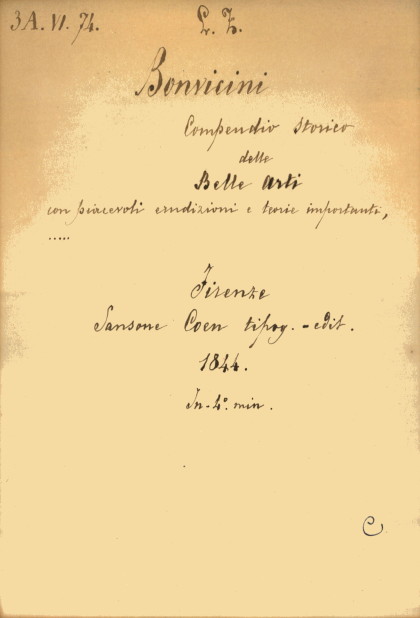 3A.VI.74. L. Z.
Bonvicini
Compendio Storico
delle
Belle Arti
con piacevoli erudizioni e teorie importanti,
.....
Firenze
Sansone Coen tipog.-edit.
1844.
In-4º. min.
C